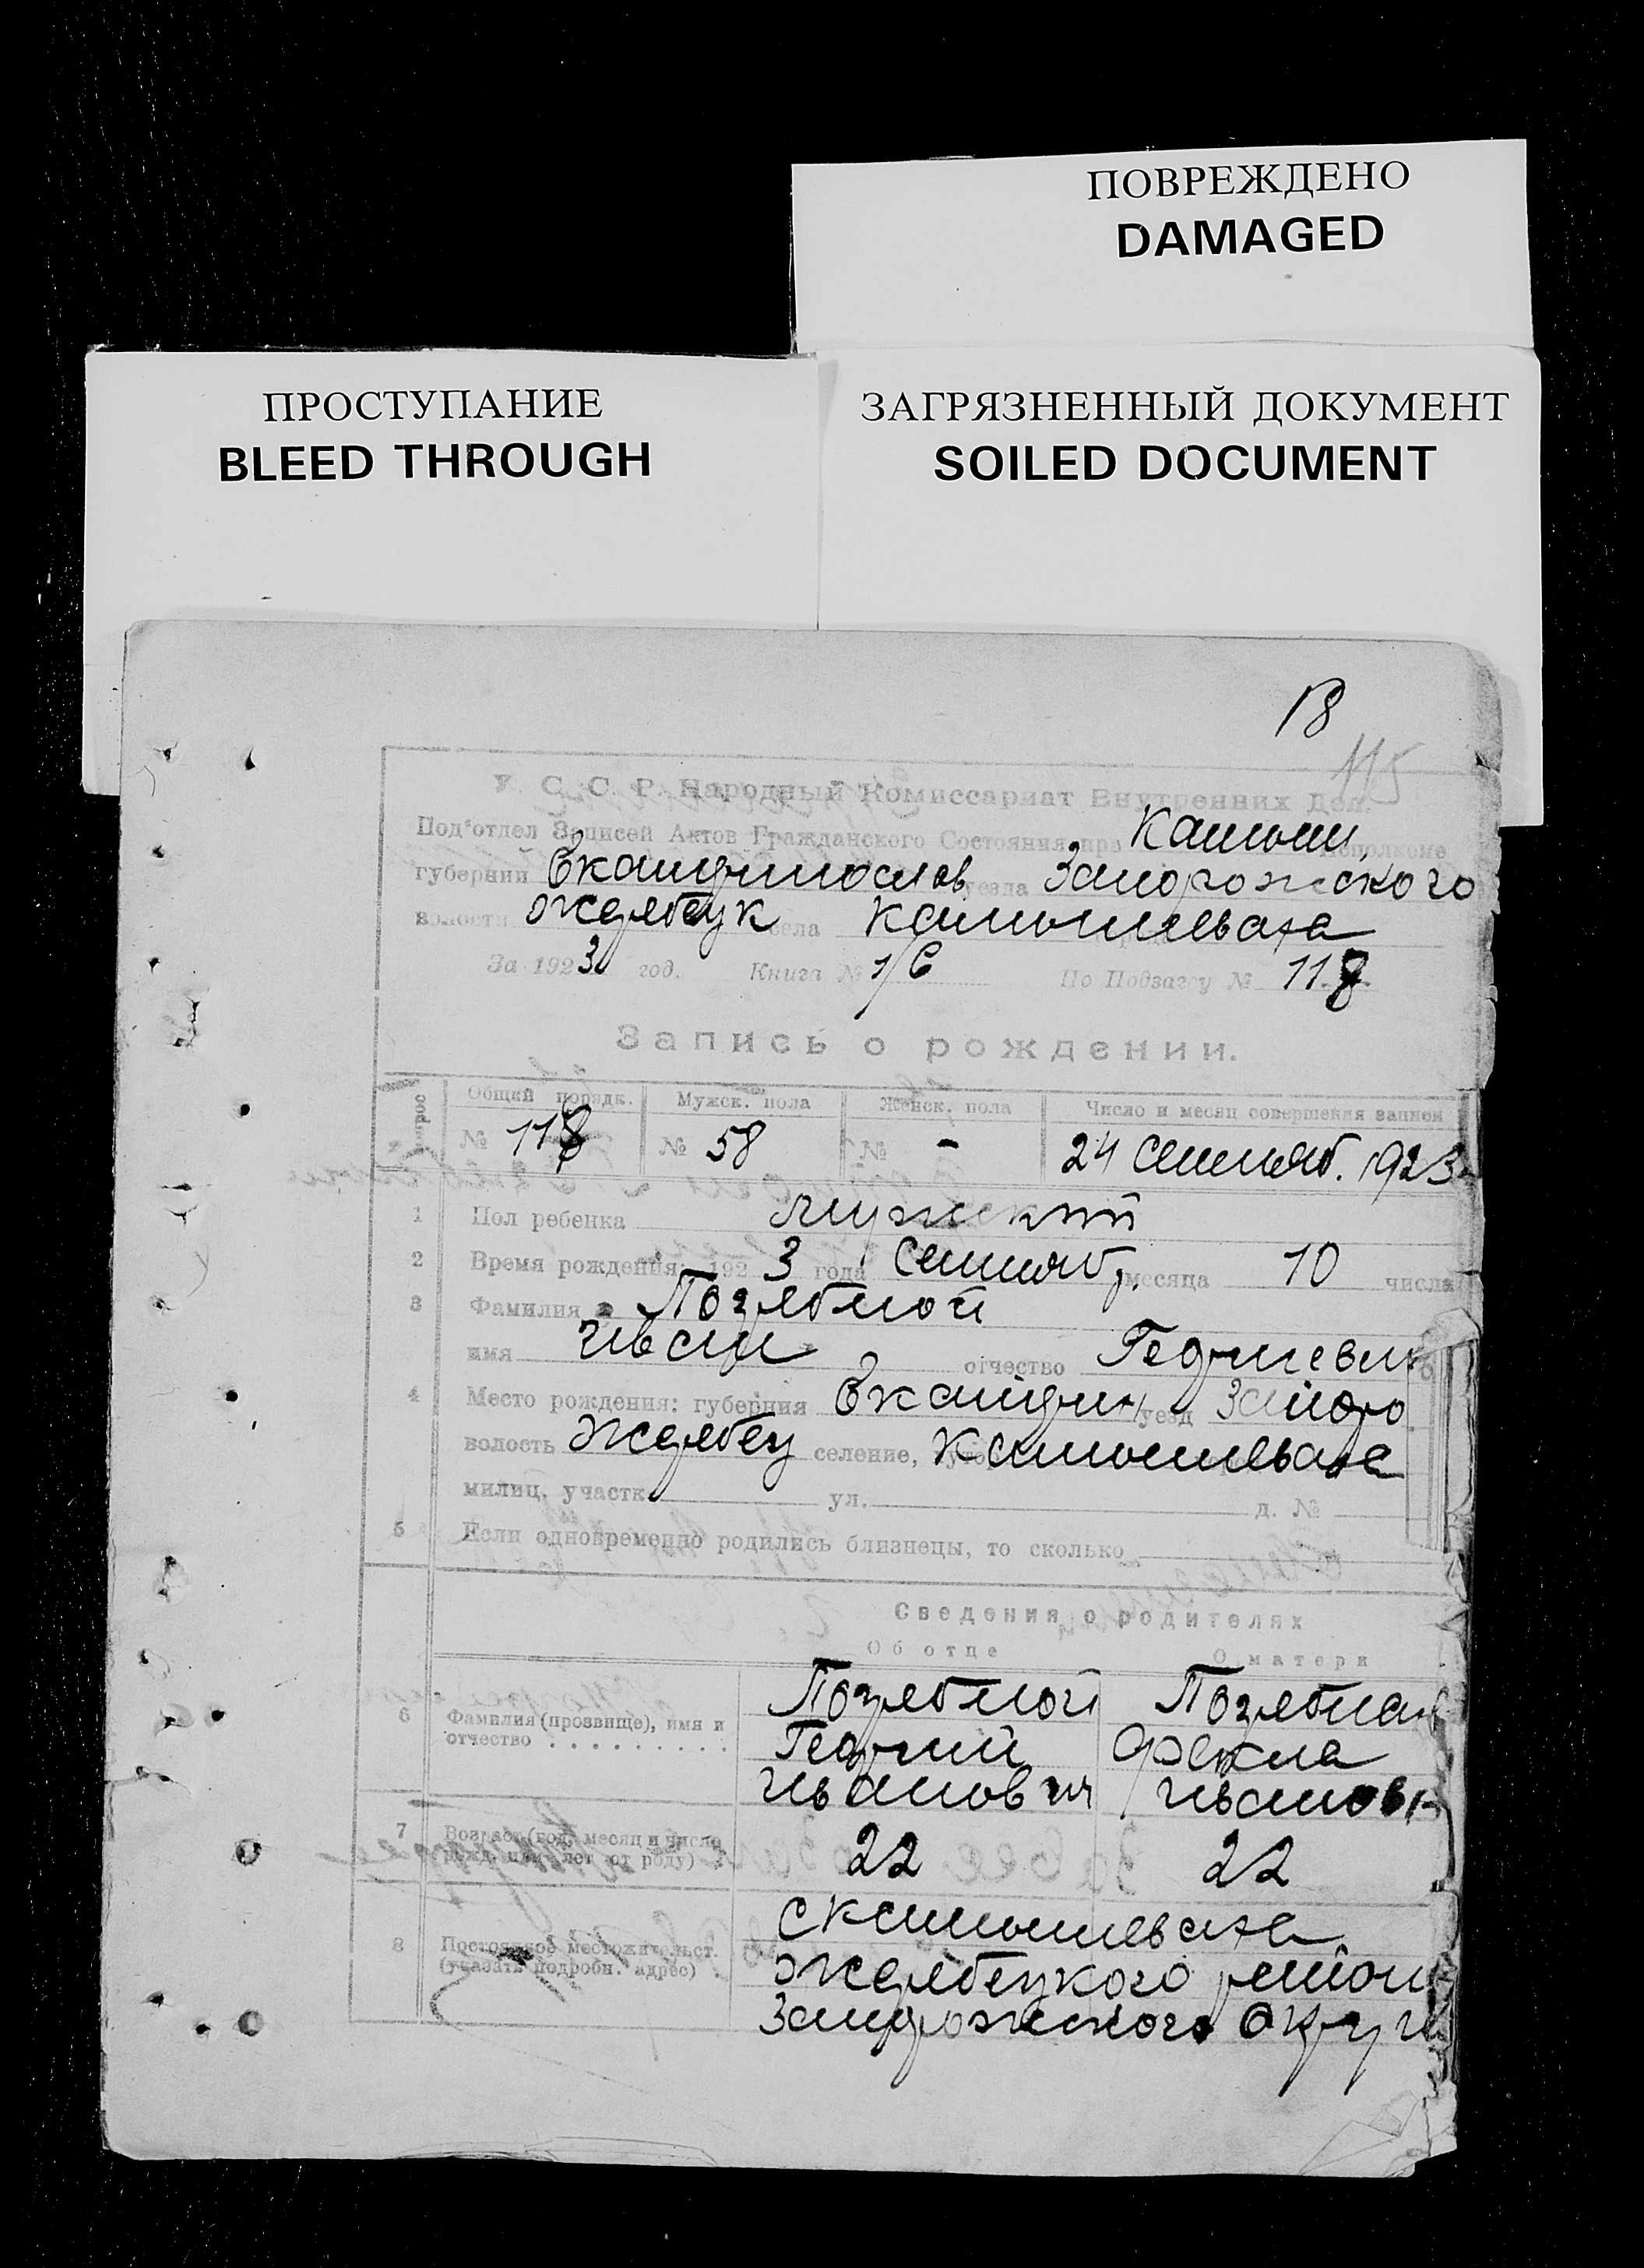 ПОВРЕЖДЕНО
DAMAGED
ПРОСТУПАНИЕ
BLEED THROUGH
ЗАГРЯЗНЕННЫЙ ДОКУМЕНТ
SOILED DOCUMENT
18
115
У. С. С. Р. Народный Комиссариат Внутренних Дел.
Под'отдел Записей Актов Гражданского Состояния при Камыш. исполкоме
губернии Екатеринослав уезда Запорожского
волости Жеребецк села Камышеваха
За 1923 год. Книга № 1/С По Подзагсу № 118
Запись о рождении.
Общий порядк. Мужск. пола Женск. пола Число и месяц совершения записи
№ 118 № 58 № - 24 Сентяб. 1923
1 Пол ребенка мужский
2 Время рождения: 1923 года Сентяб. месяца 10 числа
3 Фамилия Поземной
имя Иван отчество Георгиевич
4 Место рождения: губерния Екатерин уезд Запоро
волость Жеребец селение, хутор Камышеваха
милиц. участк ул. д. №
5 Если одновременно родились близнецы, то сколько
Сведения о родителях
Об отце О матери
6 Фамилия (прозвище), имя и отчество
Георгий Фекла
Иванович Ивановн
7 Возраст (год, месяц и число рожд. или лет от роду)
22 22
8 Постоянное местожительст. (указать подробн. адрес)
с Камышеваха
Жеребецкого район
Запорожского Округа